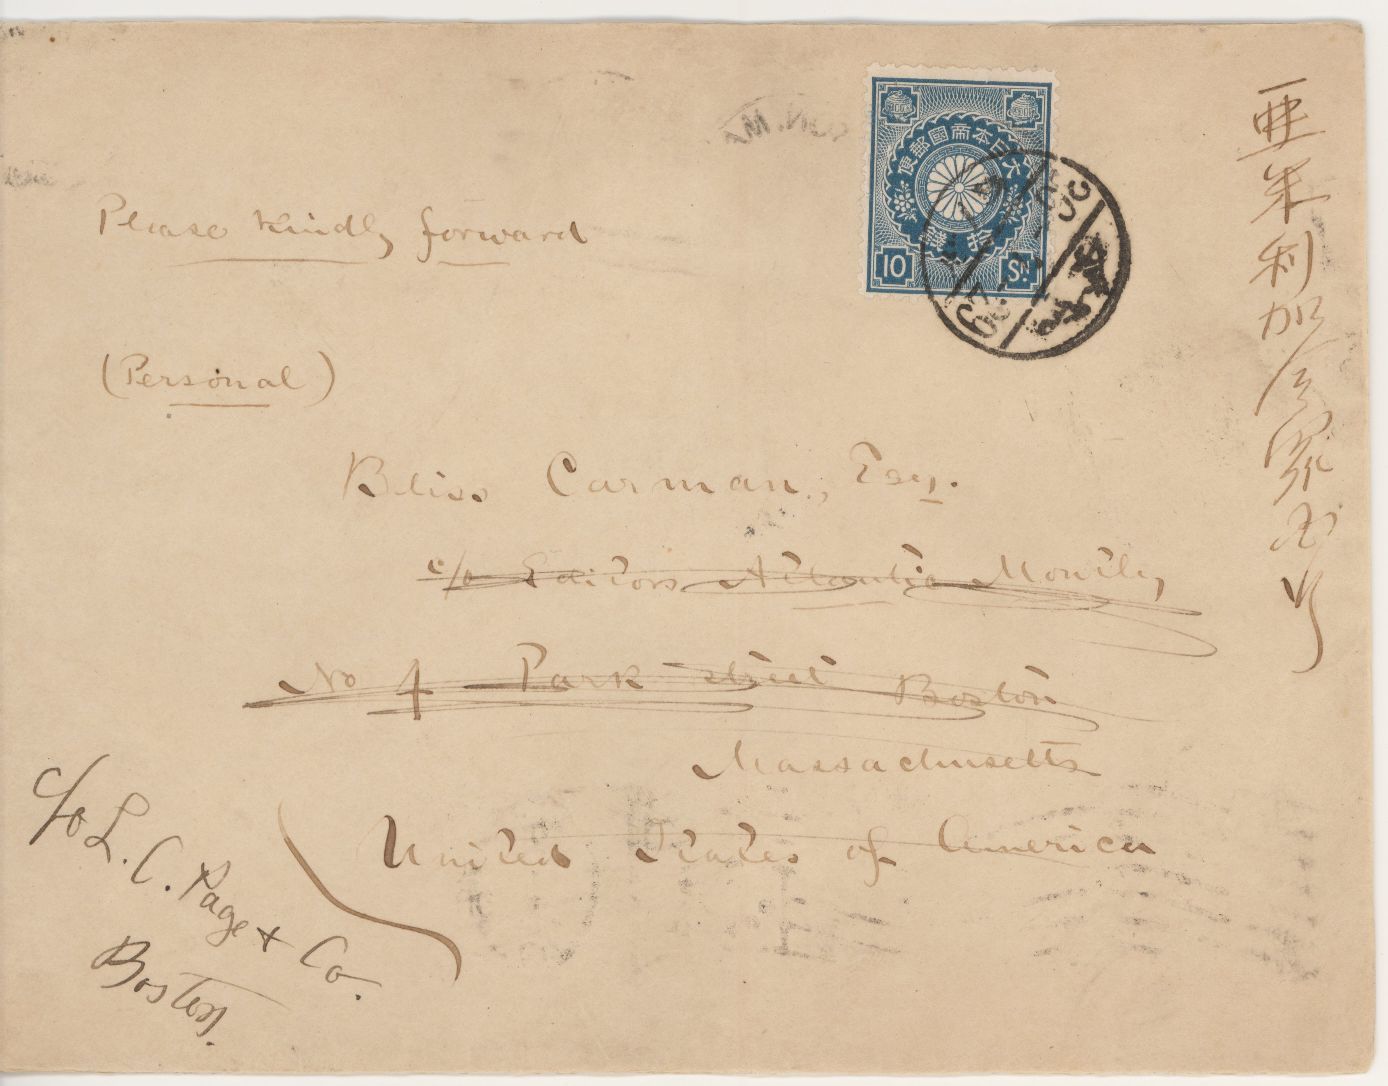 大日本帝國郵便
拾錢
10 Sn.
Please Kindly forward
(Personal)
Bliss Carman, Esq.
c/o Editors Atlantic Montly
No 4 Park street Boston
Massachusetts
United States of America
c/o L. C. Page & Co.
Boston.
亜米利加合衆国